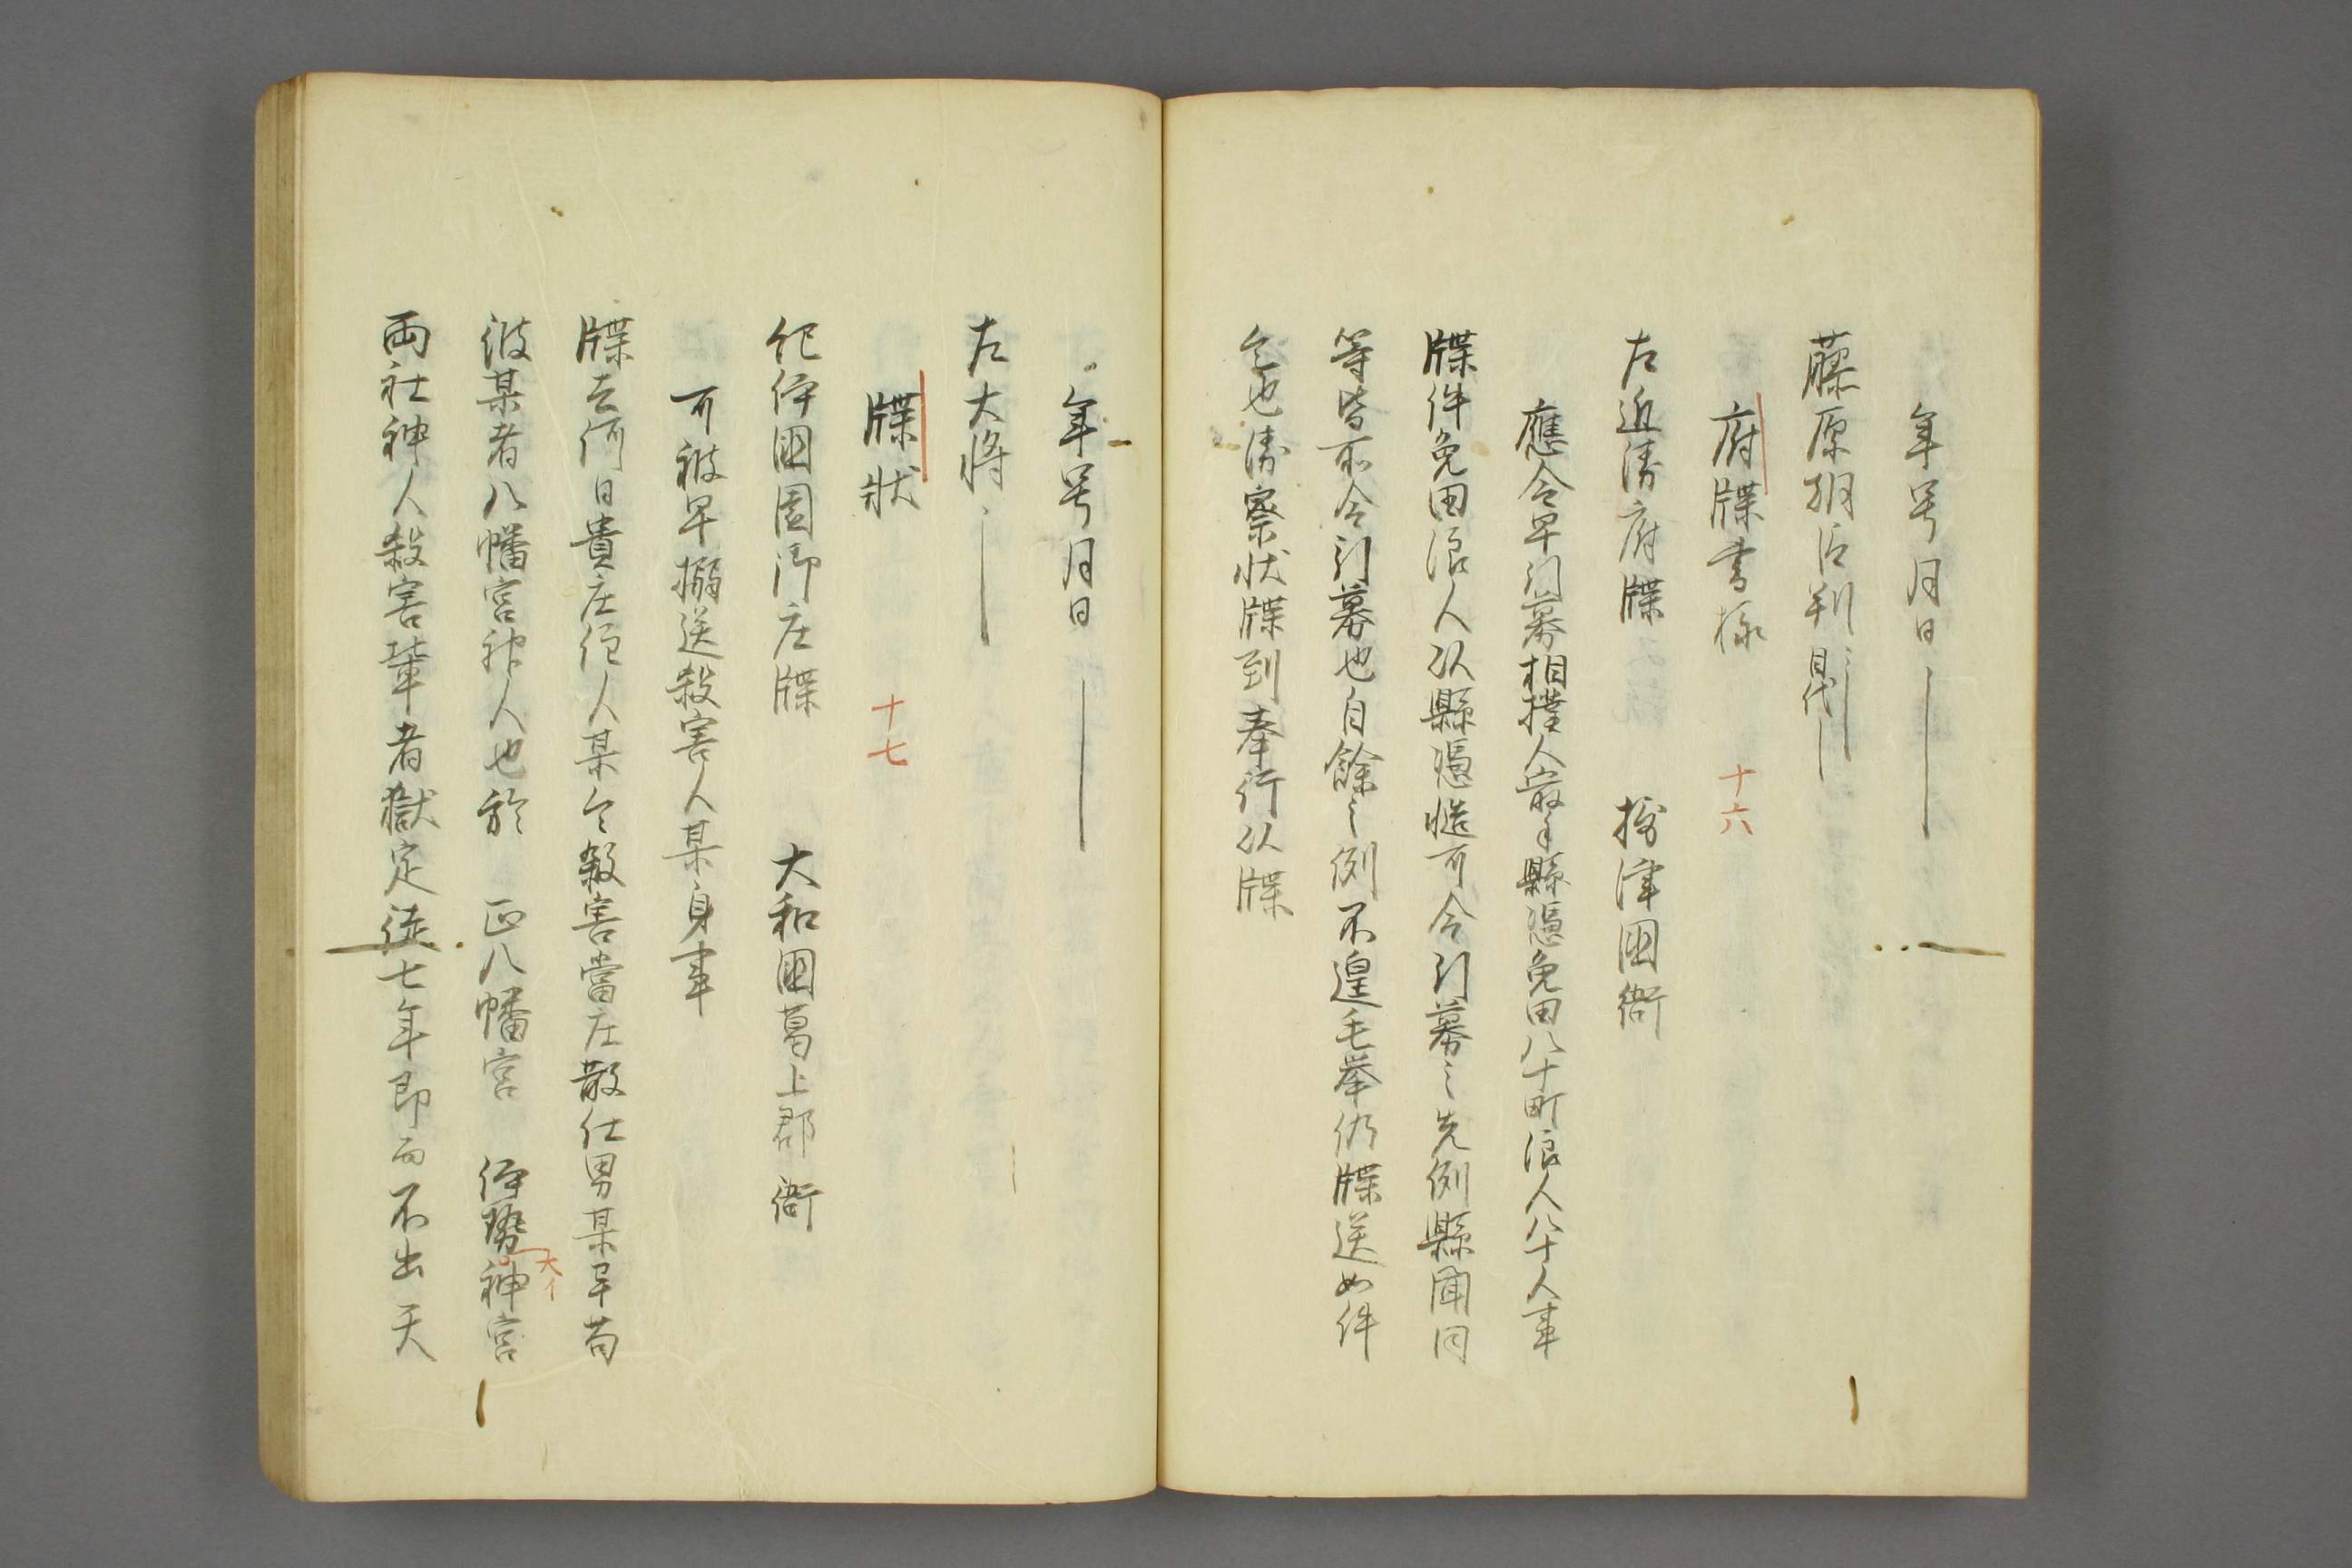 年号月日
藤原朝臣判 目代
府牒書様 十六
左近衛府牒 摂津国衙
應令早引募相撲人最手縣憑免田八十町浪人八十人事
牒件免田浪人以縣憑慥可令引募之先例縣聞同
等皆所令引募也自餘之例不遑毛挙仍牒送如件
乞也衛察状牒到奉行以牒
年号月日
左大将
牒状 十七
紀伊国薗御庄牒 大和国葛上郡衙
可被早搦送殺害人某身事
牒去何日貴庄住人某乞殺害當庄散仕男某早苟
彼某者八幡宮神人也於 正八幡宮 伊勢神宮
大イ
両社神人殺害輩者獄定徒七年即而不出天